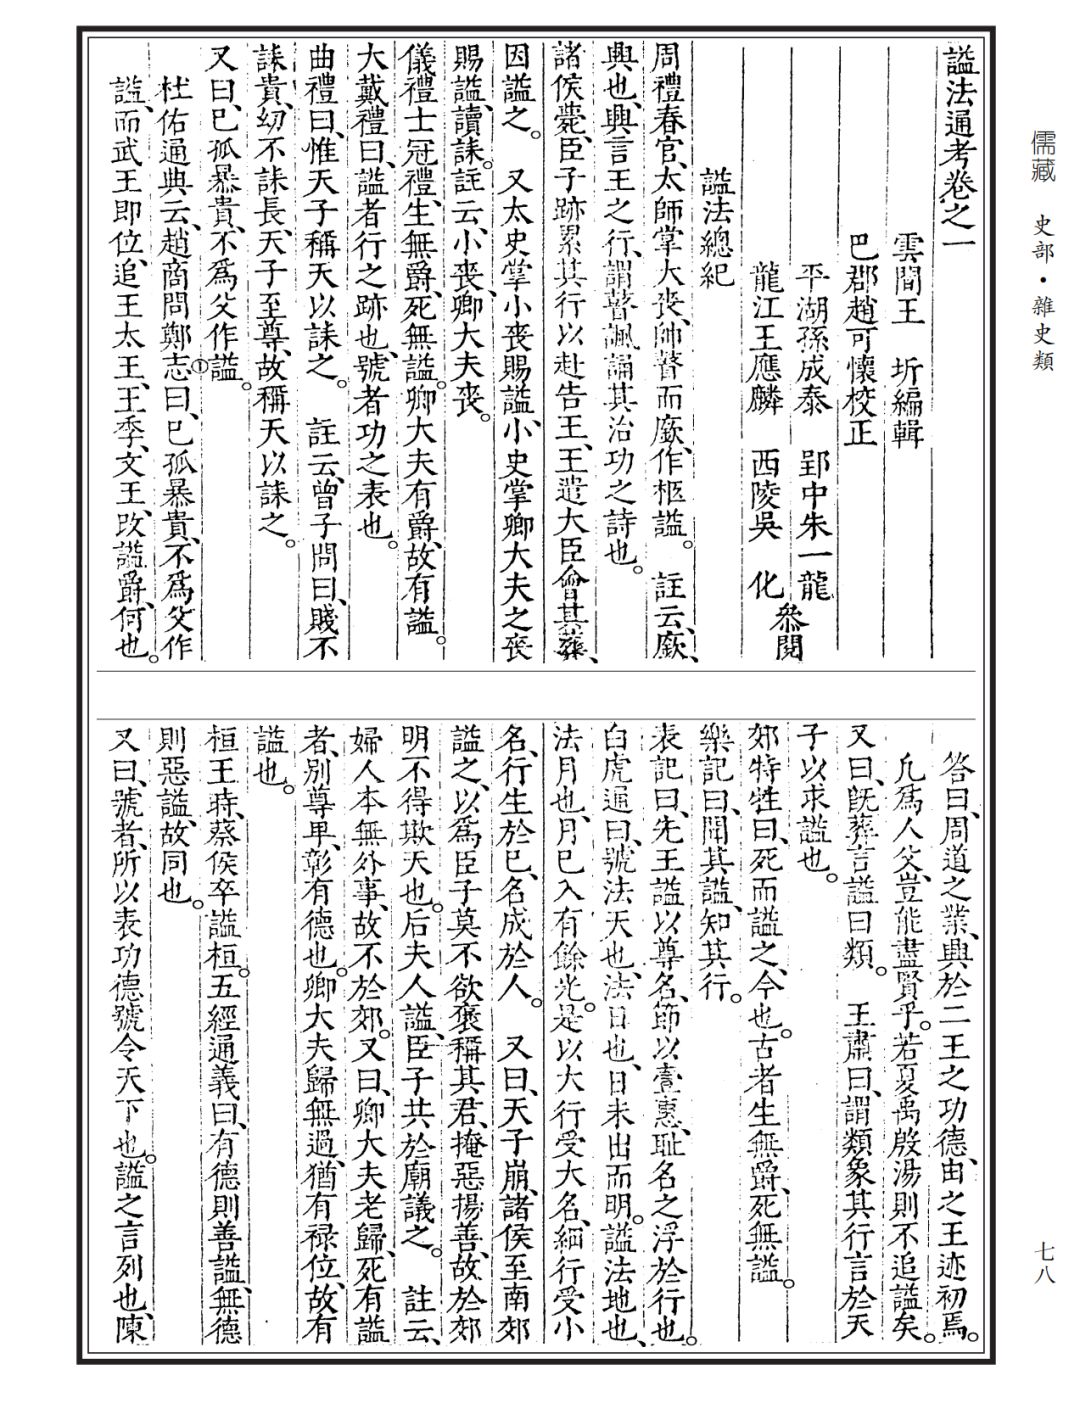 儒藏　史部・雜史類
謚法通考卷之一
雲間王　圻編輯
巴郡趙可懷校正
平湖孫成泰　郢中朱一龍
龍江王應麟　西陵吳　化
叅閱
謚法總紀
周禮春官、太師掌大丧、帥瞽而廞、作柩謚。　註云、廞、
興也、興言王之行、謂瞽諷誦其治功之詩也。
諸侯薨、臣子跡累其行以赴告王、王遣大臣會其葬、
因謚之。　又太史掌小丧賜謚、小史掌卿大夫之丧
賜謚、讀誄。註云、小丧、卿大夫丧。
儀禮士冠禮、生無爵、死無謚。卿大夫有爵、故有謚。
大戴禮曰、謚者行之跡也、號者功之表也。
曲禮曰、惟天子稱天以誄之。　註云、曾子問曰、賤不
誄貴、幼不誄長、天子至尊、故稱天以誄之。
又曰、巳孤暴貴、不爲父作謚。
杜佑通典云、趙商問鄭志①曰、巳孤暴貴、不爲父作
謚、而武王即位、追王太王、王季、文王、改謚爵、何也。
答曰、周道之業、興於二王之功德、由之王迹初焉。
凢爲人父、豈能盡賢乎。若夏禹殷湯則不追謚矣。
又曰、旣葬言謚曰類。　王肅曰、謂類象其行言於天
子以求謚也。
郊特牲曰、死而謚之、今也。古者生無爵、死無謚。
樂記曰、聞其謚、知其行。
表記曰、先王謚以尊名、節以壹惠、耻名之浮於行也。
白虎通曰、號法天也、法日也、日未出而明。謚法地也、
法月也、月巳入有餘光。是以大行受大名、細行受小
名、行生於巳、名成於人。　又曰、天子崩、諸侯至南郊
謚之、以爲臣子莫不欲褒稱其君、掩惡揚善、故於郊
明不得欺天也。后夫人謚、臣子共於廟議之。　註云、
婦人本無外事、故不於郊。又曰、卿大夫老歸、死有謚
者、別尊卑、彰有德也。卿大夫歸無過、猶有禄位、故有
謚也。
桓王時、蔡侯卒謚桓。五經通義曰、有德則善謚、無德
則惡謚、故同也。
又曰、號者、所以表功德號令天下也。謚之言列也、陳
七八